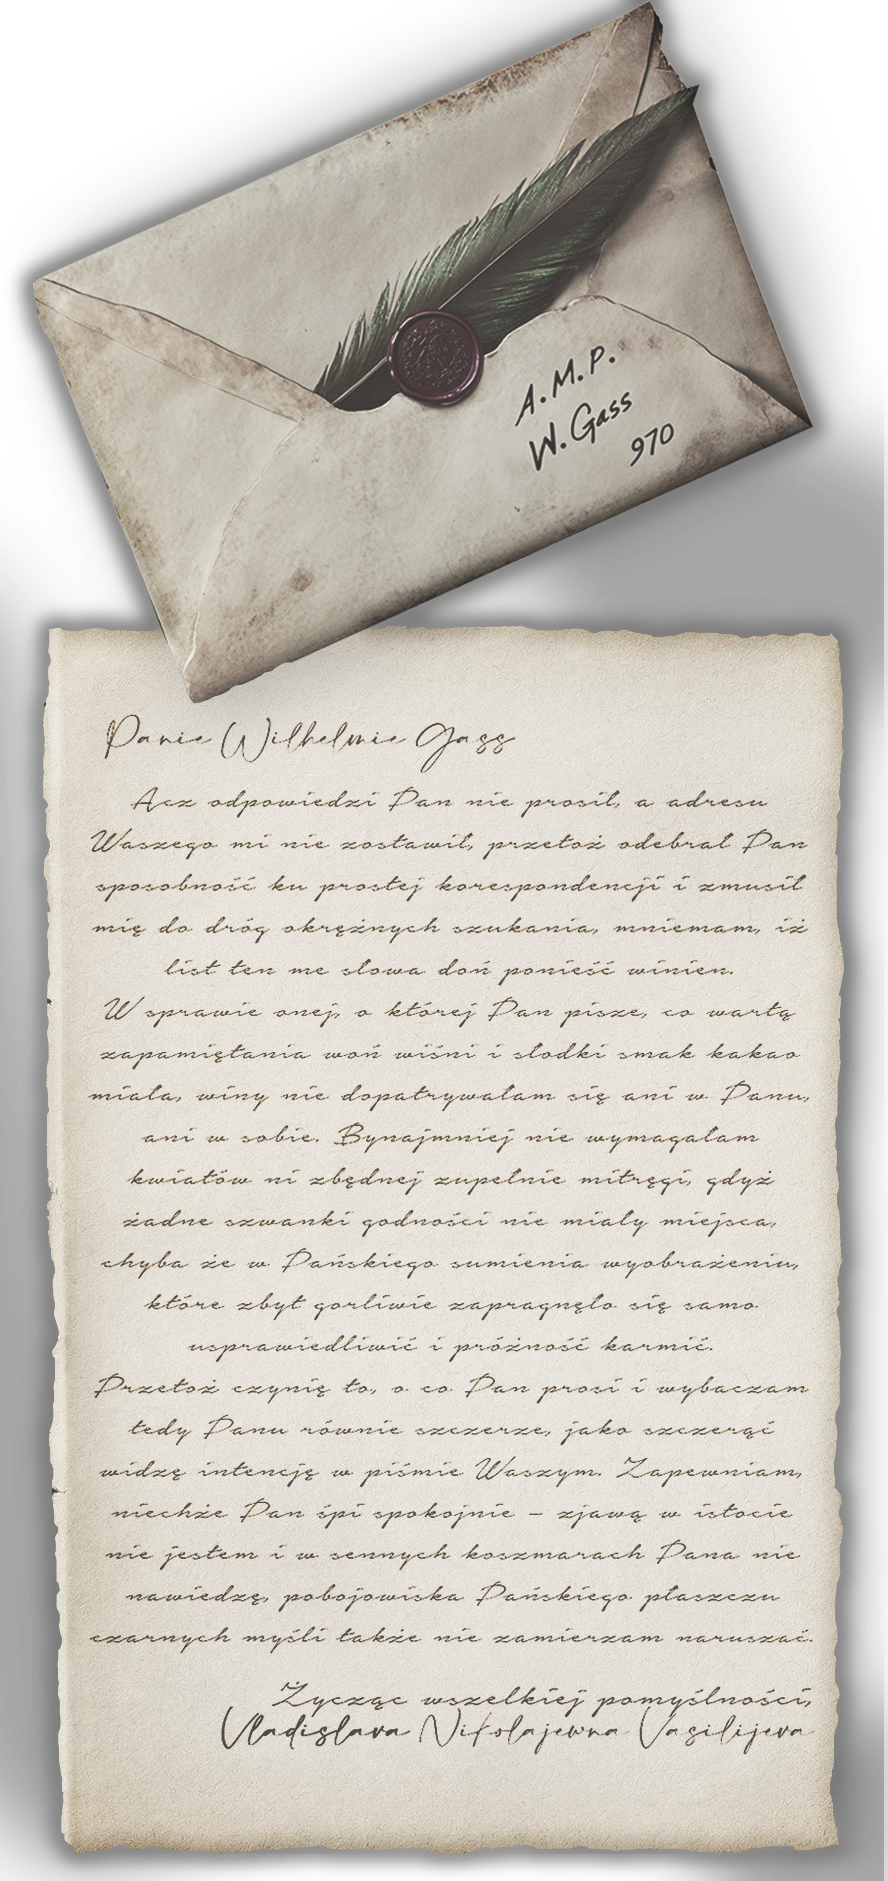 A. M. P.
W. Gass
970
Panie Wilhelmie Gass
Acz odpowiedzi Pan nie prosił, a adresu
Waszego mi nie zostawił, przetoż odebrał Pan
sposobność ku prostej korespondencji i zmusił
mię do dróg okrężnych szukania, mniemam, iż
list ten me słowa doń ponieść winien.
W sprawie onej, o której Pan pisze, co wartą
zapamiętania woń wiśni i słodki smak kakao
miała, winy nie dopatrywałam się ani w Panu,
ani w sobie. Bynajmniej nie wymagałam
kwiatów ni zbędnej zupełnie mitręgi, gdyż
żadne szwanki godności nie miały miejsca,
chyba że w Pańskiego sumienia wyobrażeniu,
które zbyt gorliwie zapragnęło się samo
usprawiedliwić i próżność karmić.
Przetoż czynię to, o co Pan prosi i wybaczam
tedy Panu równie szczerze, jako szczerąć
widzę intencję w piśmie Waszym. Zapewniam,
niechże Pan śpi spokojnie – zjawą w istocie
nie jestem i w sennych koszmarach Pana nie
nawiedzę, pobojowiska Pańskiego płaszczu
czarnych myśli także nie zamierzam naruszać.
Życząc wszelkiej pomyślności,
Vladislava Nikolajewna Vasilijeva